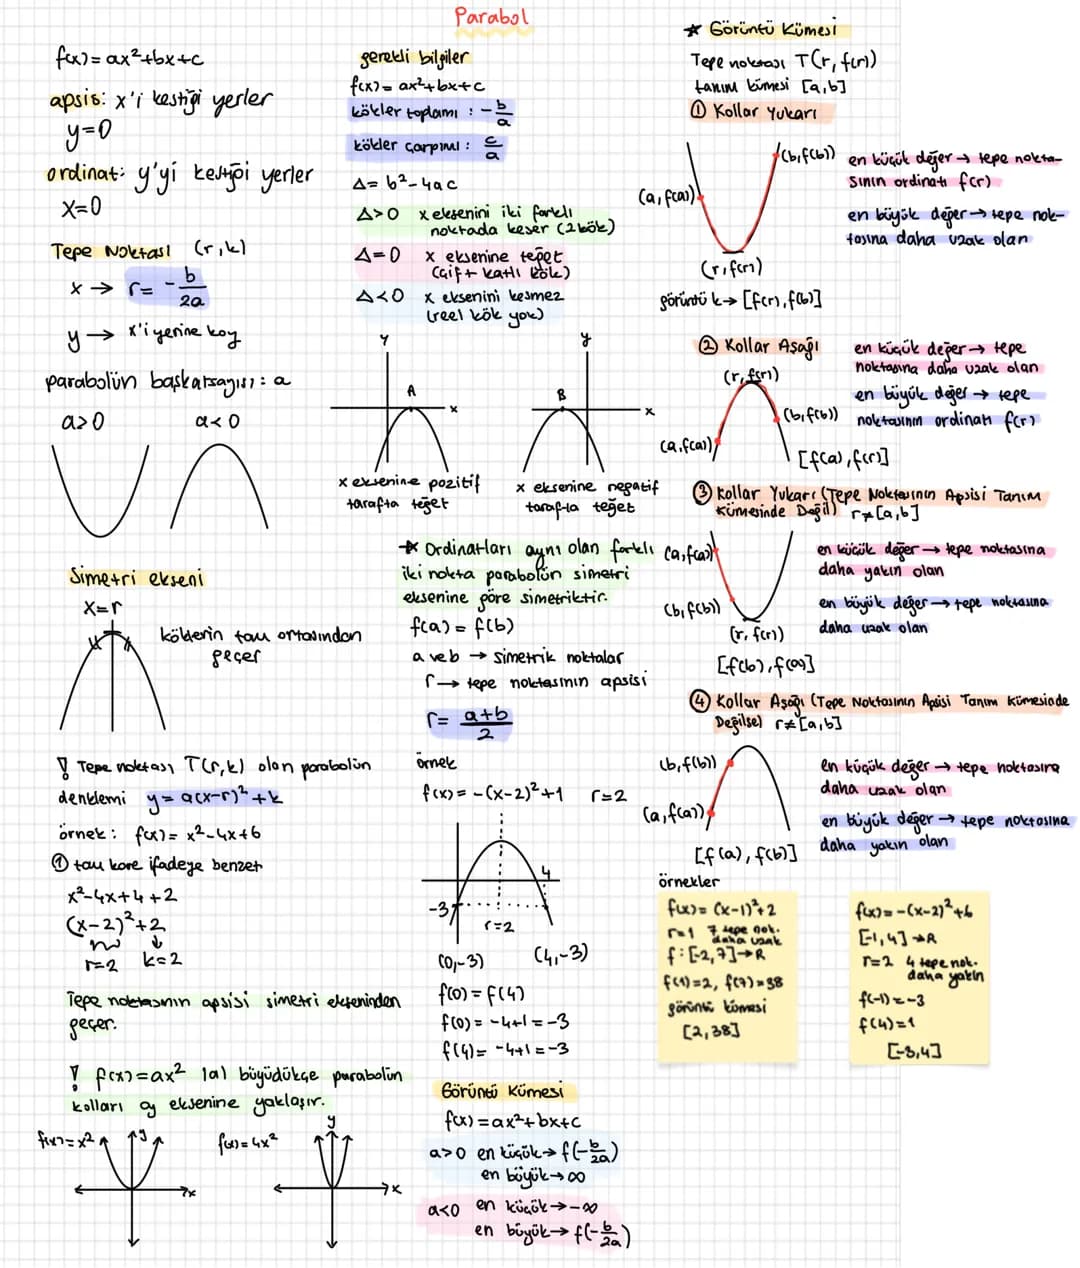 Parabol
f(x)= ax²+bx+c
apsis: x'i kestiği yerler
y=0
ordinat: y'yi kestiği yerler
x=0
Tepe Noktası (r,k)
x → r= -b/2a
y → x'i yerine koy
parabolün başkatsayısı: a
a>0 a<0
Simetri ekseni
x=r
köklerin tam ortasından
geçer
! Tepe noktası T(r,k) olan parabolün
denklemi y= a(x-r)²+k
örnek: f(x)= x²-4x+6
① tam kare ifadeye benzet
x²-4x+4+2
(x-2)²+2
r=2 k=2
Tepe noktasının apsisi simetri ekseninden
geçer.
! f(x)=ax² |a| büyüdükçe parabolün
kolları oy eksenine yaklaşır.
f(x)=x² y x
f(x)=4x² y x
gerekli bilgiler
f(x)= ax²+bx+c
kökler toplamı : -b/a
kökler çarpımı : c/a
Δ= b²-4ac
Δ>0 x eksenini iki farklı
noktada keser (2 kök)
Δ=0 x eksenine teğet
(çift katlı kök)
Δ<0 x eksenini kesmez
(reel kök yok)
y A x
y B x
x eksenine pozitif
tarafta teğet
x eksenine negatif
tarafta teğet
* Ordinatları aynı olan farklı
iki nokta parabolün simetri
eksenine göre simetriktir.
f(a) = f(b)
a ve b → simetrik noktalar
r → tepe noktasının apsisi
r= a+b/2
örnek
f(x)= -(x-2)²+1 r=2
4
-3
r=2
(0,-3) (4,-3)
f(0) = f(4)
f(0) = -4+1 = -3
f(4)= -4+1 = -3
Görüntü Kümesi
f(x) = ax²+bx+c
a>0 en küçük→ f(-b/2a)
en büyük→∞
a<0 en küçük→-∞
en büyük→ f(-b/2a)
★ Görüntü Kümesi
Tepe noktası T(r, f(r))
tanım kümesi [a,b]
① Kollar Yukarı
(b,f(b))
(a,f(a))
(r,f(r))
en küçük değer→ tepe nokta-
sının ordinatı f(r)
en büyük değer→tepe nok-
tasına daha uzak olan
görüntü k→ [f(r),f(b)]
② Kollar Aşağı
(r,f(r))
(b,f(b))
(a,f(a))
en küçük değer→ tepe
noktasına daha uzak olan
en büyük değer → tepe
noktasının ordinatı f(r)
[f(a),f(r)]
③ Kollar Yukarı (Tepe Noktasının Apsisi Tanım
Kümesinde Değil) r≠[a,b]
(a,f(a))
(b,f(b))
(r,f(r))
en küçük değer→ tepe noktasına
daha yakın olan
en büyük değer→tepe noktasına
daha uzak olan
[f(b),f(a)]
④ Kollar Aşağı (Tepe Noktasının Apsisi Tanım Kümesinde
Değilse) r≠[a,b]
(b,f(b))
(a,f(a))
en küçük değer→ tepe noktasına
daha uzak olan
en büyük değer→ tepe noktasına
daha yakın olan
[f(a), f(b)]
örnekler
f(x)= (x-1)²+2
r=1 7 tepe nok.
daha uzak
f:[-2,7]→R
f(1)=2, f(7)=38
görüntü kümesi
[2,38]
f(x)= -(x-2)²+6
[-1,4]→R
r=2 4 tepe nok.
daha yakın
f(-1)=-3
f(4)=1
[-3,4]